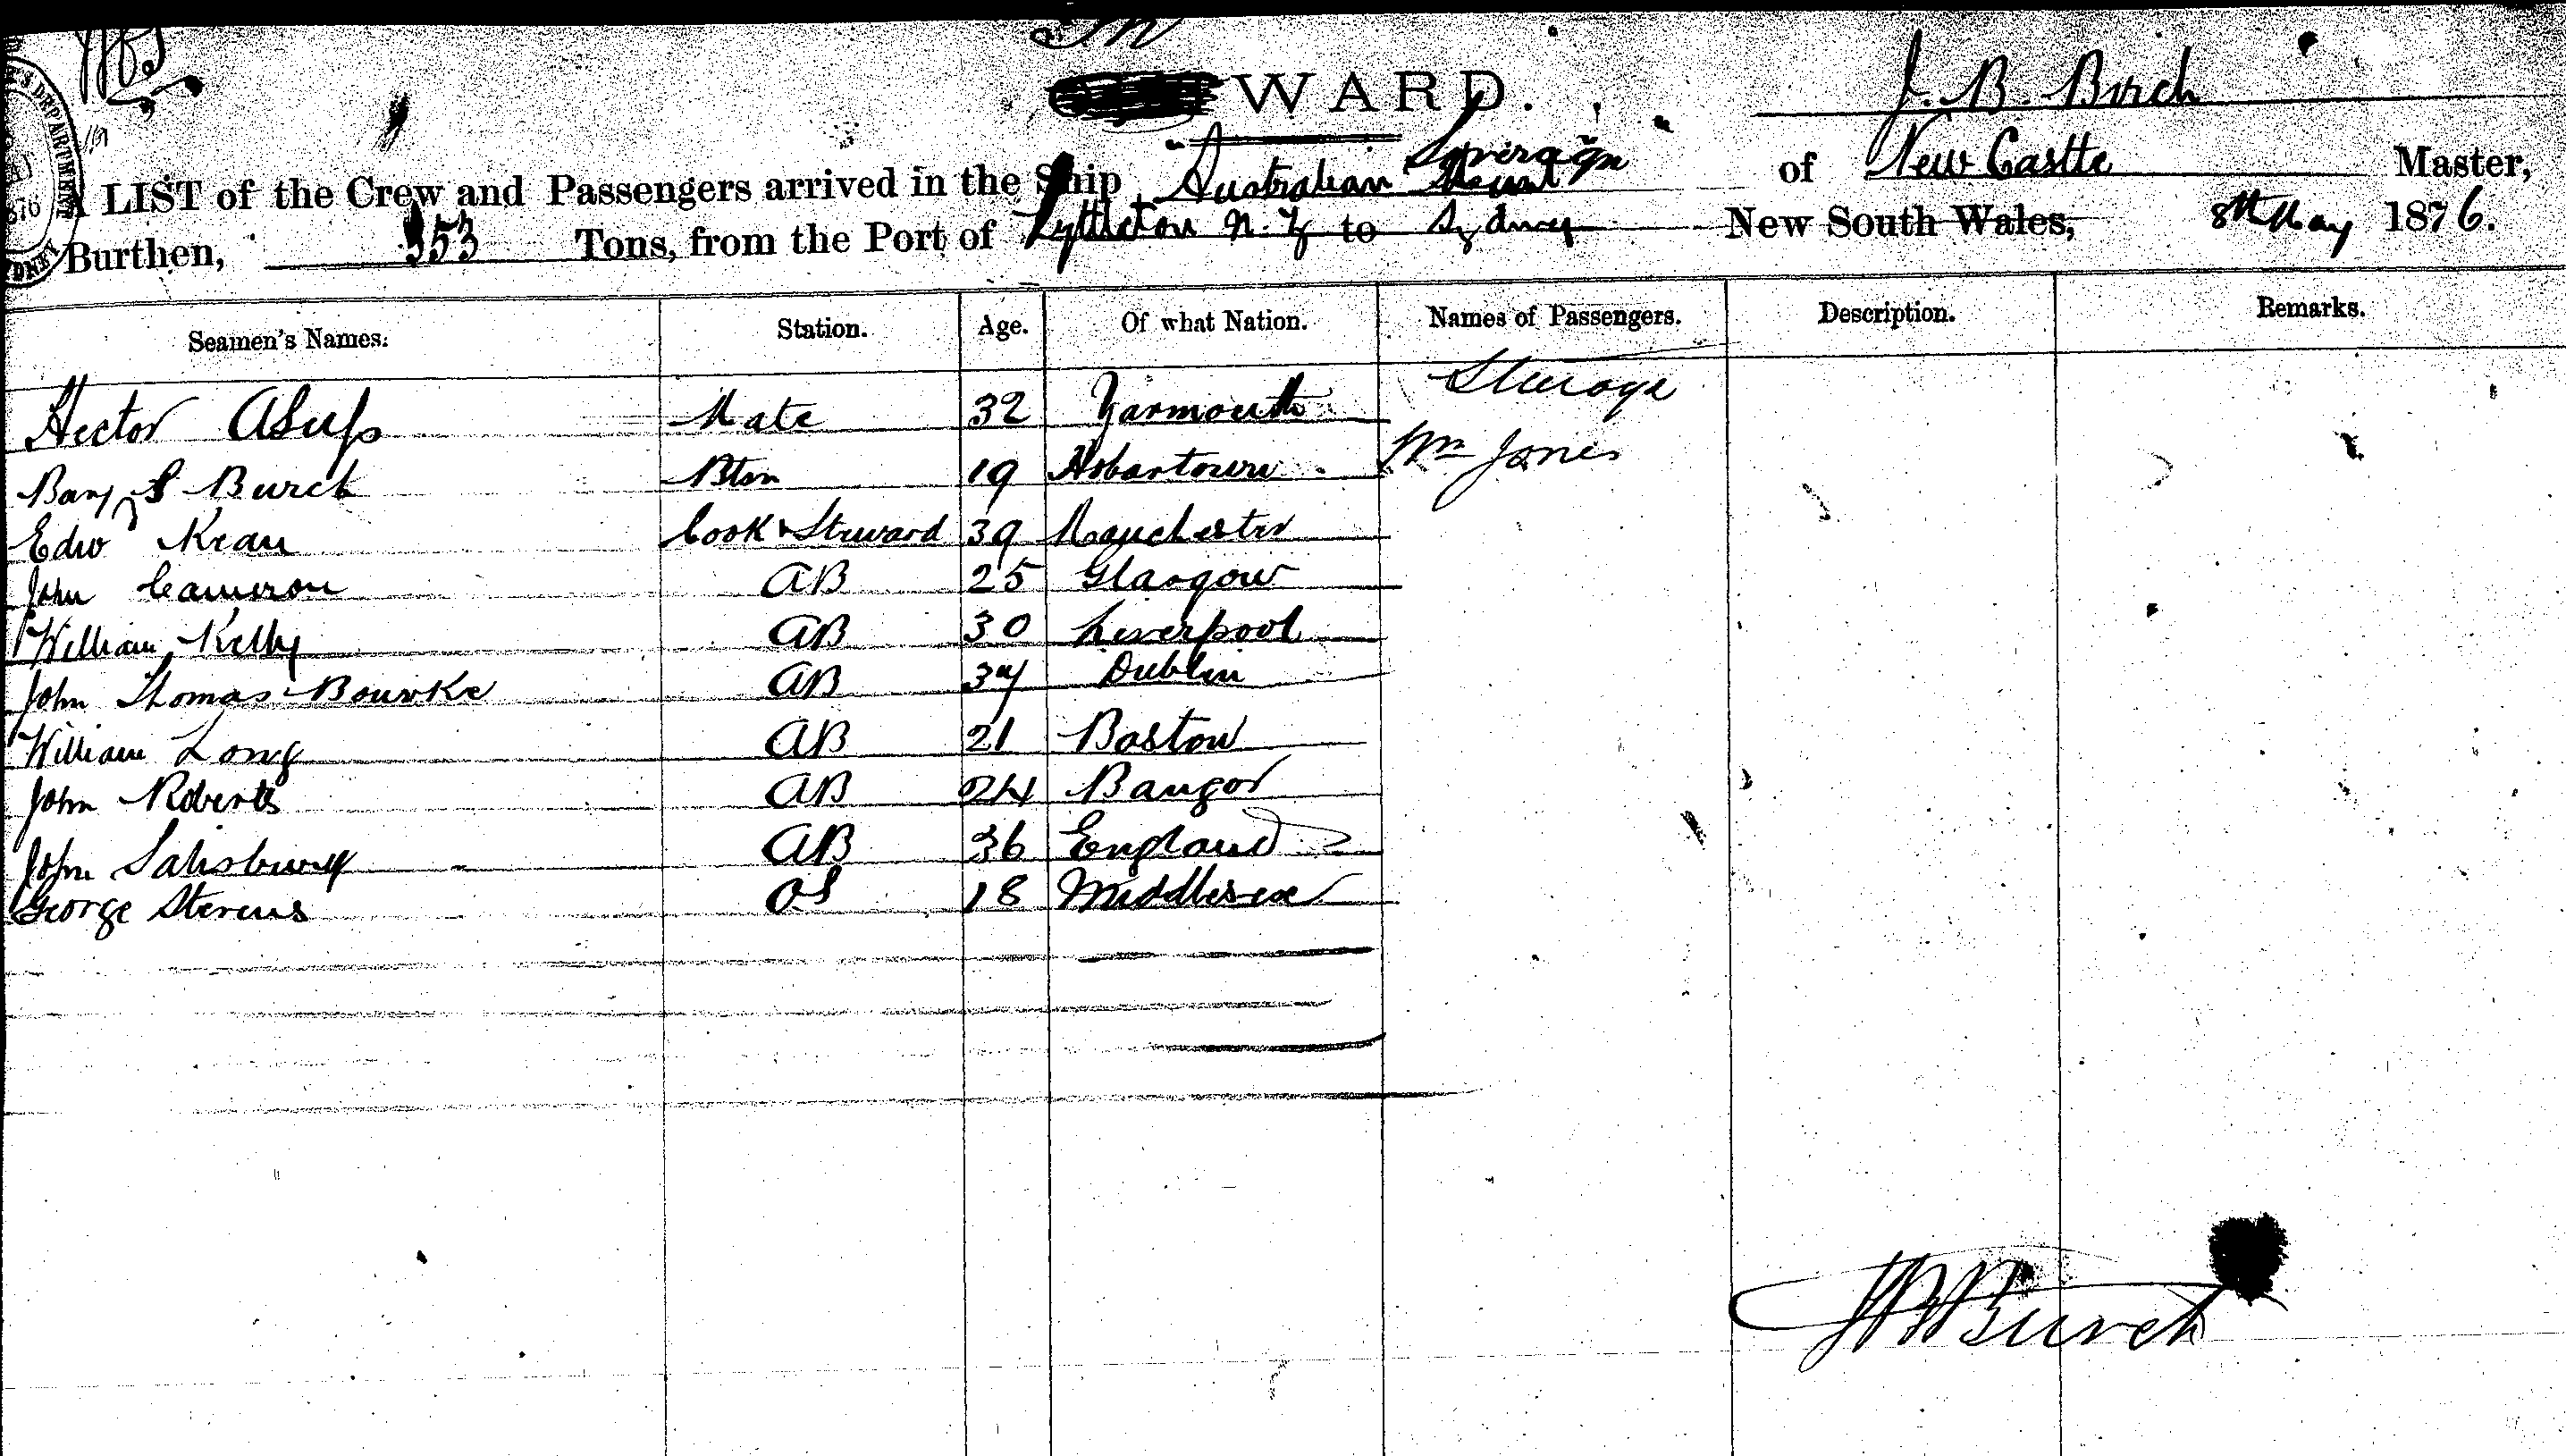 In
WARD.
J. B. Birch
A LIST of the Crew and Passengers arrived in the Ship Australian Sovereign of New Castle Master,
Burthen, 353 Tons, from the Port of Lyttleton N. Z to Sydney New South Wales, 8th May 1876.
Seamen's Names. Station. Age. Of what Nation. Names of Passengers. Description. Remarks.
Hector Mate 32 Yarmouth Steerage
S Burch Btsn 19 Hobartown Wm Jones
Edw Kean Cook & Steward 39 Manchester
John Cameron AB 25 Glasgow
William Kelly AB 30 Liverpool
John Thomas Bourke AB 34 Dublin
William Long AB 21 Boston
John Roberts AB 24 Bangor
John Salisbury AB 36 England
George Stevens OS 18 Middlesex
J B Burch